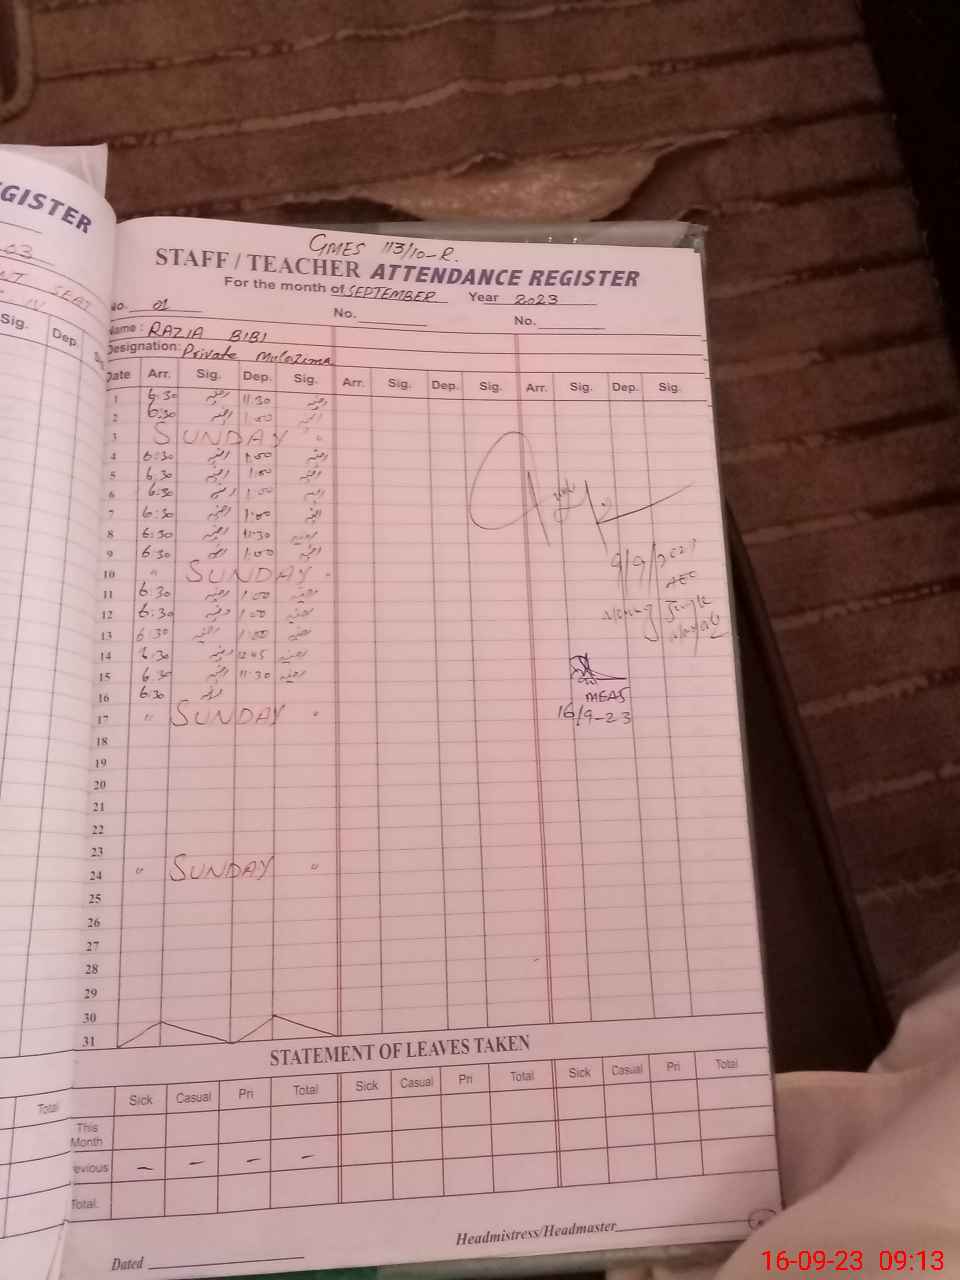 EGISTER
03
Sig.
Dep.
GMES 113/10-R.
STAFF / TEACHER ATTENDANCE REGISTER
For the month of SEPTEMBER Year 2023
No. 01 No. No.
Name: RAZIA BIBI
Designation: Private Mulazima
Date Arr. Sig. Dep. Sig. Arr. Sig. Dep. Sig. Arr. Sig. Dep. Sig.
1 6:30 رضیہ 11.30 رضیہ
2 6:30 رضیہ 1.00 رضیہ
3 SUNDAY "
4 6:30 رضیہ 1.00 رضیہ
5 6:30 رضیہ 1.00 رضیہ
6 6:30 رضیہ 1.00 رضیہ
7 6:30 رضیہ 1.00 رضیہ
8 6:30 رضیہ 11.30 رضیہ
9 6:30 رضیہ 1.00 رضیہ
9/9/2023
AEO
10 " SUNDAY "
11 6.30 رضیہ 1.00 رضیہ
12 6:30 رضیہ 1.00 رضیہ
13 6:30 رضیہ 1.00 رضیہ
14 6:30 رضیہ 12.45 رضیہ
15 6:30 رضیہ 11.30 رضیہ
16 6:30 رضیہ
MEAS
17 " SUNDAY "
16/9-23
18
19
20
21
22
23
24 " SUNDAY "
25
26
27
28
29
30
31
STATEMENT OF LEAVES TAKEN
Total Sick Casual Pri Total Sick Casual Pri Total Sick Casual Pri Total
This Month
evious – – – –
Total.
Headmistress/Headmaster
Dated
16-09-23 09:13